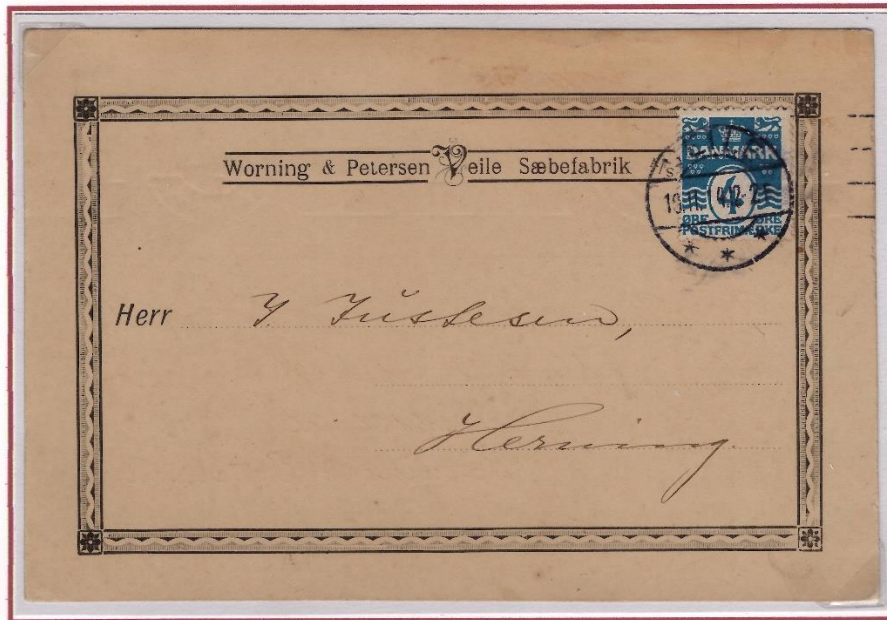 Worning & Petersen Veile Sæbefabrik
DANMARK
4
ØRE ØRE
POSTFRIMÆRKE
Herr J. Justesen,
Herning.